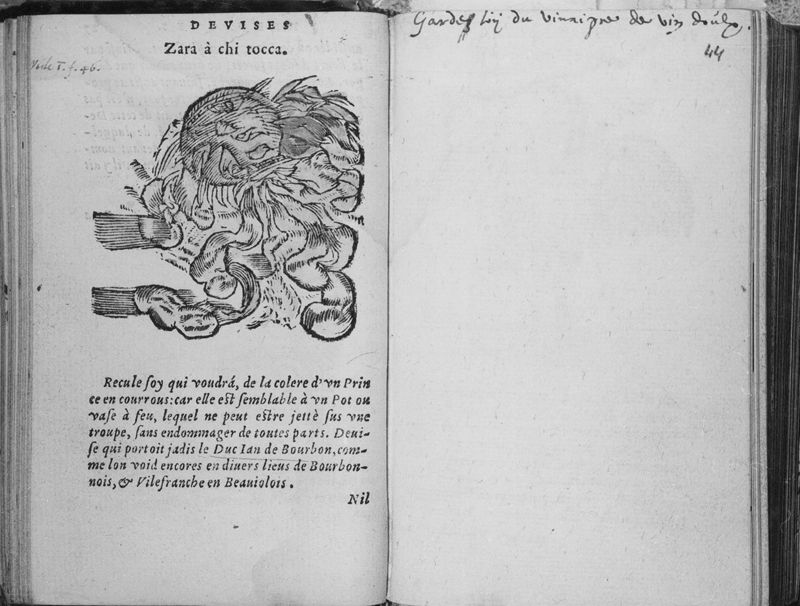 DEVISES
Zara à chi tocca.
Vide T. f. 46.
Recule soy qui voudrá, de la colere d'vn Prin
ce en courrous: car elle est semblable à vn Pot ou
vase à feu, lequel ne peut estre jettè sus vne
troupe, sans endommager de toutes parts. Deui-
se qui portoit jadis le Duc Ian de Bourbon, com-
me lon void encores en diuers lieus de Bourbon-
nois, & Vilefranche en Beauiolois.
Nil
Gardes toy du vinaigre de vin doulx.
44